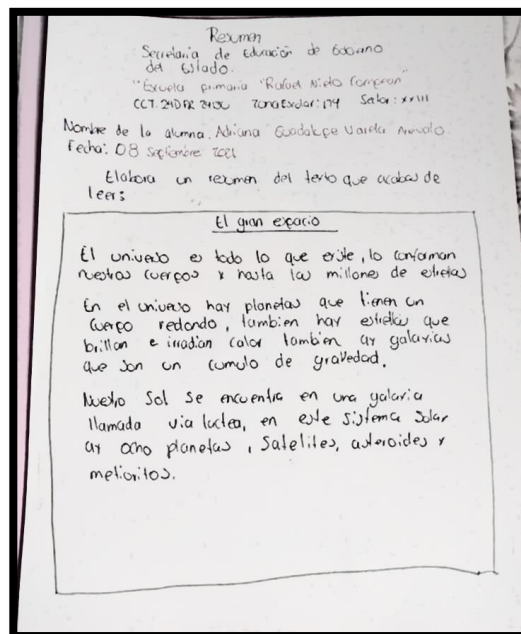 Resumen
Secretaria de Educación de Gobierno
del Estado.
"Escuela primaria "Rafael Nieto Compean"
Zona Escolar: 174 Sector: XXIII
Nombre de la alumna: Adriana Guadalupe Varela Arevalo.
Fecha: 08 Septiembre 2021
Elabora un resumen del texto que acabas de
leer:
El gran espacio
El universo es todo lo que existe, lo conforman
nuestros cuerpos y hasta las millones de estrellas
En el universo hay planetas que tienen un
cuerpo redondo, tambien hay estrellas que
brillan e irradian calor tambien ay galaxias
que son un cumulo de gravedad.
Nuestro Sol se encuentra en una galaxia
llamada via lactea, en este sistema solar
ay ocho planetas, satelites, asteroides y
metioritos.